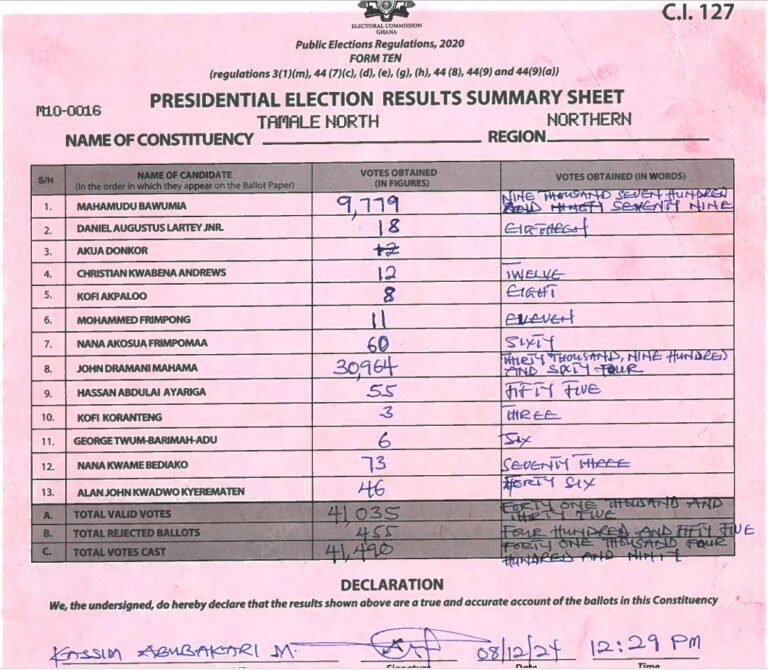 ELECTORAL COMMISSION
GHANA
C.I. 127
Public Elections Regulations, 2020
FORM TEN
(regulations 3(1)(m), 44 (7)(c), (d), (e), (g), (h), 44 (8), 44(9) and 44(9)(a))
M10-0016
PRESIDENTIAL ELECTION RESULTS SUMMARY SHEET
NAME OF CONSTITUENCY TAMALE NORTH REGION NORTHERN
S/N NAME OF CANDIDATE (In the order in which they appear on the Ballot Paper) VOTES OBTAINED (IN FIGURES) VOTES OBTAINED (IN WORDS)
1. MAHAMUDU BAWUMIA 9,779 NINE THOUSAND SEVEN HUNDRED AND NINETY SEVENTY NINE
2. DANIEL AUGUSTUS LARTEY JNR. 18
3. AKUA DONKOR 12
4. CHRISTIAN KWABENA ANDREWS 12 TWELVE
5. KOFI AKPALOO 8 EIGHT
6. MOHAMMED FRIMPONG 11 ELEVEN
7. NANA AKOSUA FRIMPOMAA 60 SIXTY
8. JOHN DRAMANI MAHAMA 30,964 THIRTY THOUSAND, NINE HUNDRED AND SIXTY FOUR
9. HASSAN ABDULAI AYARIGA 55 FIFTY FIVE
10. KOFI KORANTENG 3 THREE
11. GEORGE TWUM-BARIMAH-ADU 6 SIX
12. NANA KWAME BEDIAKO 73 SEVENTY THREE
13. ALAN JOHN KWADWO KYEREMATEN 46 FORTY SIX
A. TOTAL VALID VOTES 41,035 FORTY ONE THOUSAND AND THIRTY FIVE
B. TOTAL REJECTED BALLOTS 455 FOUR HUNDRED AND FIFTY FIVE
C. TOTAL VOTES CAST 41,490 FORTY ONE THOUSAND FOUR HUNDRED AND NINTY
DECLARATION
We, the undersigned, do hereby declare that the results shown above are a true and accurate account of the ballots in this Constituency
KASSIM ABUBAKARI M. 08/12/24 12:29 PM
Signature Date Time